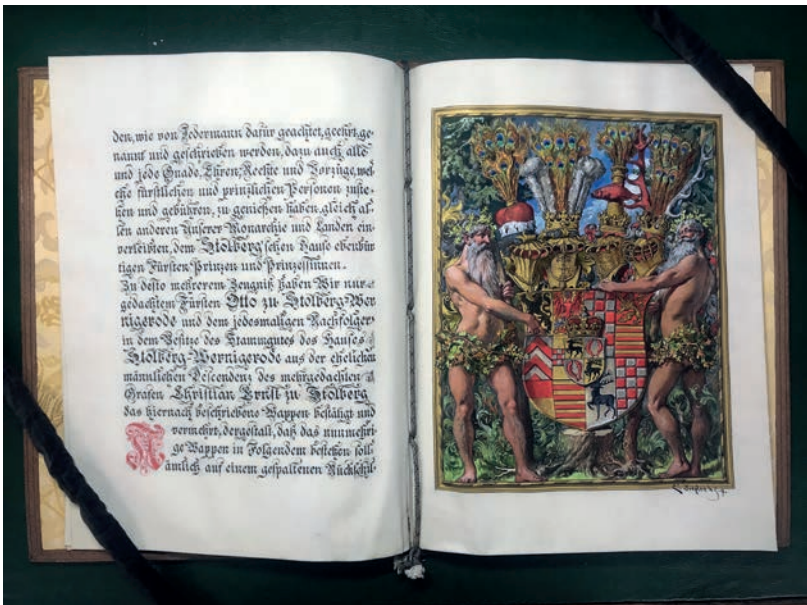 den, wie von Jedermann dafür geachtet, geehrt, ge-
nannt und geschrieben werden, dazu auch alle
und jede Gnade, Ehren, Rechte und Vorzüge, wel-
che fürstlichen und prinzlichen Personen zuste-
hen und gebühren, zu genießen haben, gleich al-
len anderen Unserer Monarchie und Landen ein-
verleibten, dem Stolberg'schen Hause ebenbür
tigen Fürsten Prinzen und Prinzessinnen.
Zu desto mehrerem Zeugniß haben Wir nur-
gedachtem Fürsten Otto zu Stolberg-Wer
nigerode und dem jedesmaligen Nachfolger
in dem Besitze des Stammgutes des Hauses
Stolberg-Wernigerode aus der ehelichen
männlichen Descendenz des mehrgedachten
Grafen Christian Ernst zu Stolberg
das hiernach beschriebene Wappen bestätigt und
vermehrt, dergestalt, daß das nunmehri
ge Wappen in Folgendem bestehen soll:
Nämlich auf einem gespaltenen Rückschil-